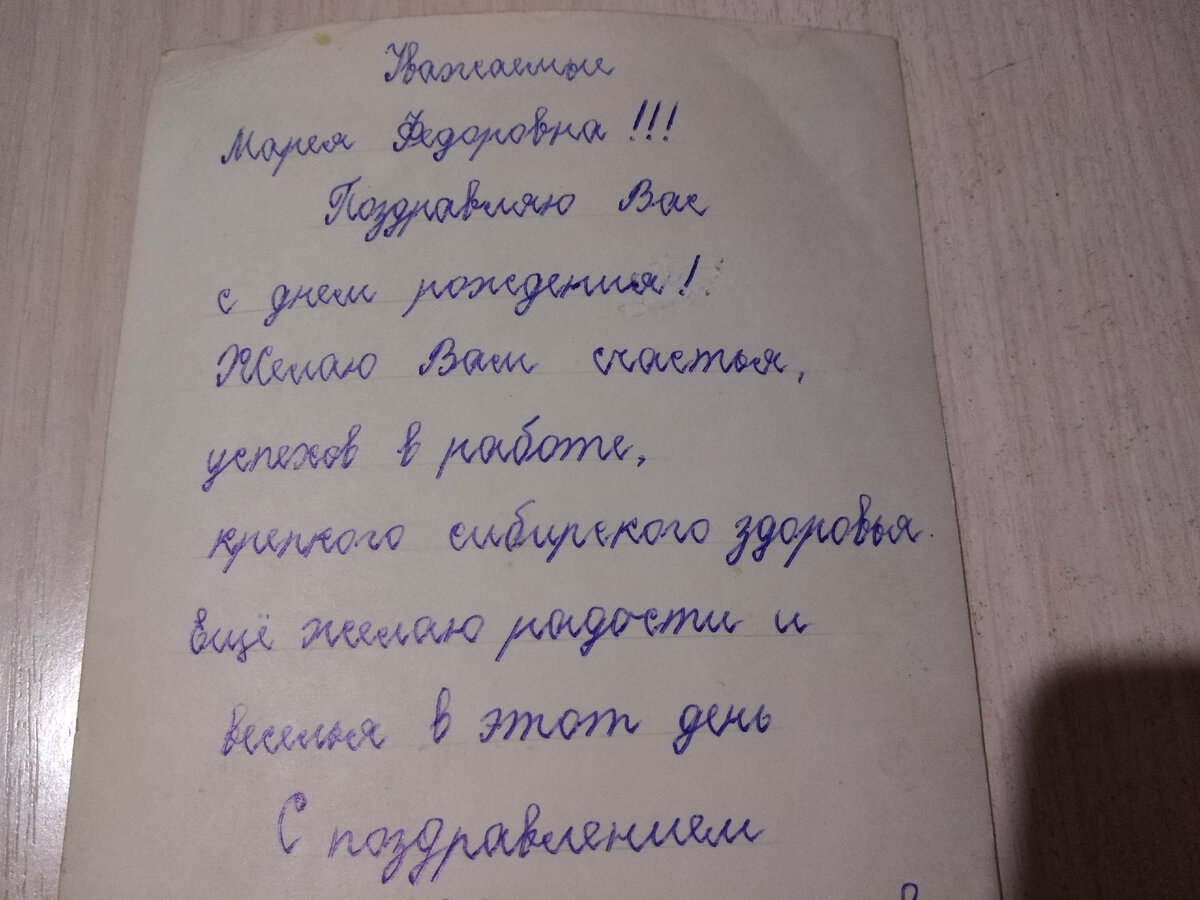 Уважаемые
Марея Федоровна!!!
Поздравляю Вас
с днем рождения!
Желаю Вам счастья,
успехов в работе,
крепкого сибирского здоровья.
Ещё желаю радости и
веселья в этот день
С поздравлением